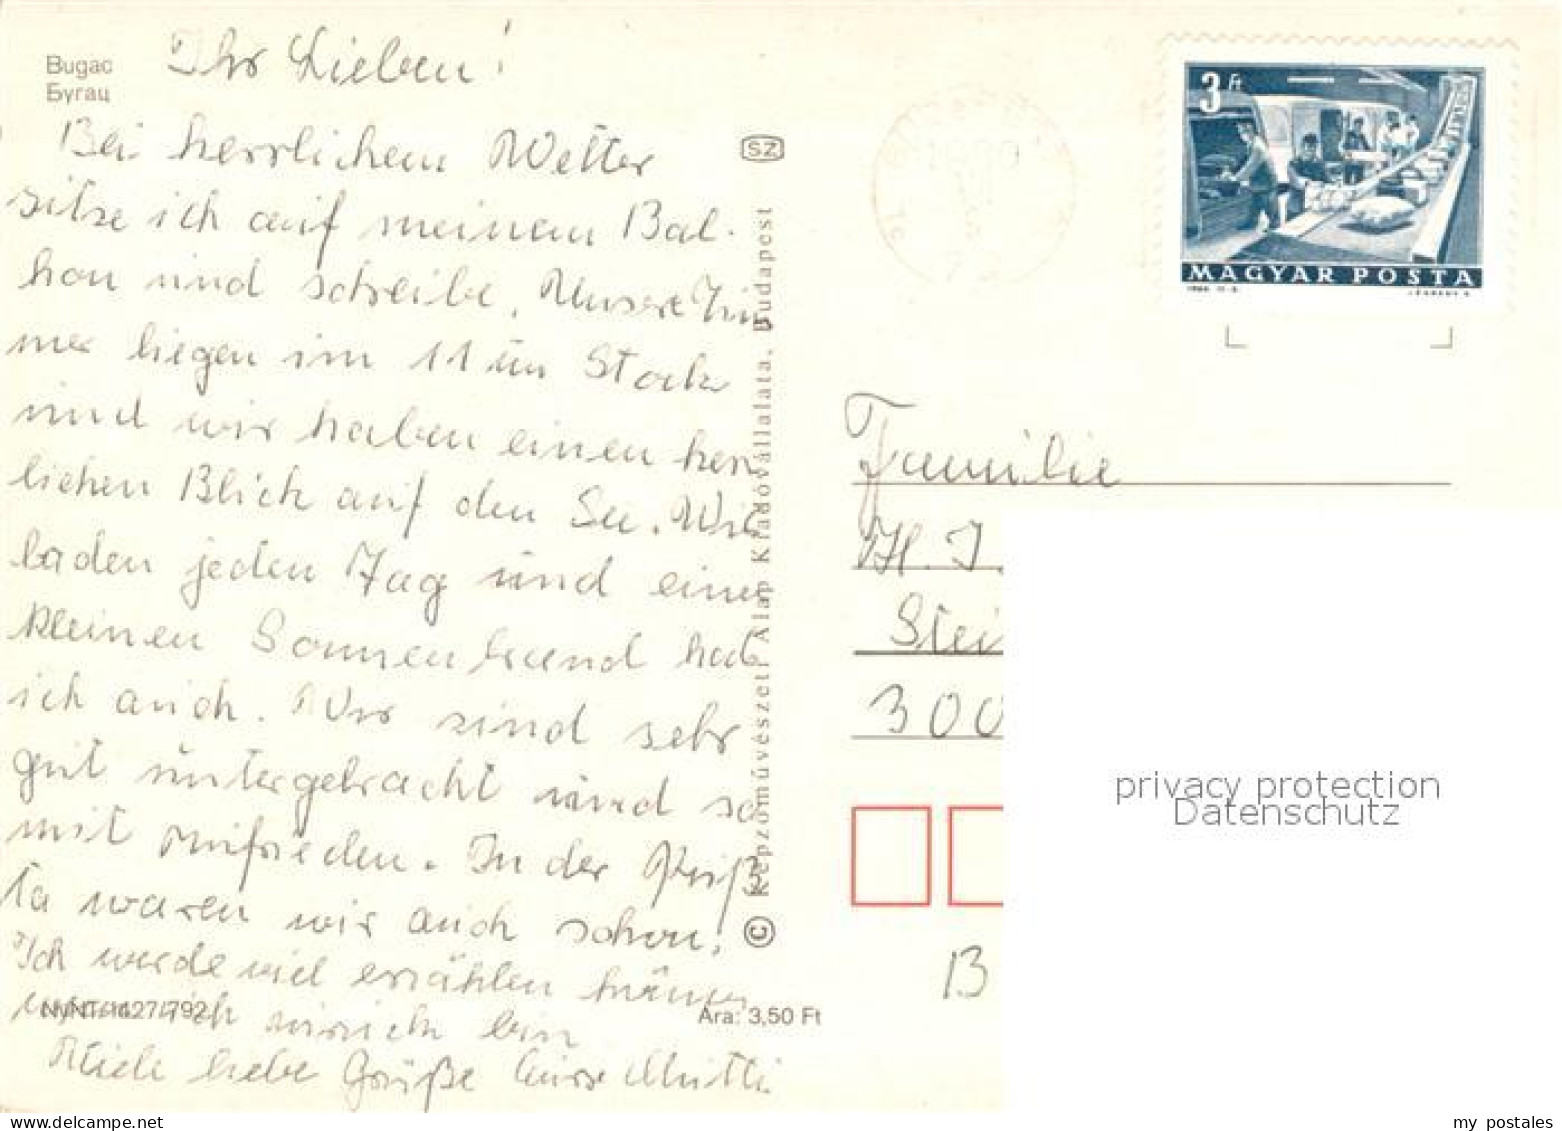 Bugac
Бугац
Ihr Lieben!
Bei herrlichem Wetter
sitze ich auf meinem Bal-
kon und schreibe. Unsere Zim
mer liegen im 11 ten Stock
und wir haben einen herr
lichen Blick auf den See. Wir
baden jeden Tag und einen
kleinen Sonnenbrand hab
ich auch. Wir sind sehr
gut untergebracht und so
mit zufrieden. In der Puß
ta waren wir auch schon.
Ich werde viel erzählen können
wenn ich zurück bin
Viele liebe Grüße Eure Mutti
NyNT-1427/792
Ára: 3,50 Ft
SZ
© Képzőművészeti Alap Kiadóvállalata, Budapest
3 Ft
MAGYAR POSTA
Familie
H. J.
Stei
300
B
privacy protection
Datenschutz
www.delcampe.net
my_postales